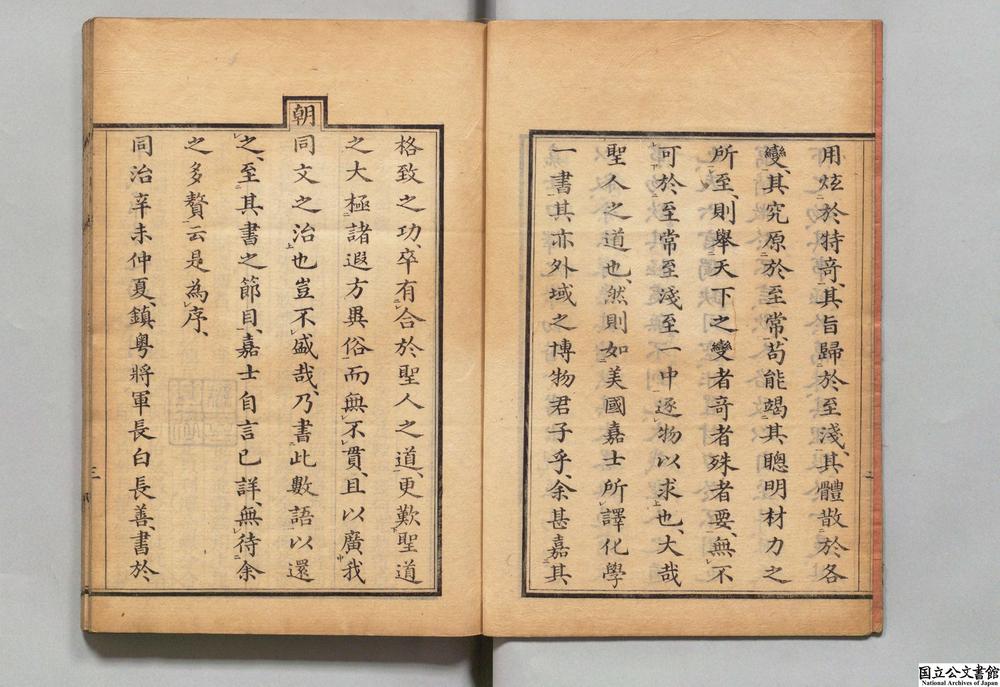 用炫於特奇、其旨歸於至淺、其體散於各
變、其究原於至常、苟能竭其聰明材力之
所至、則舉天下之變者奇者殊者要、無不
可於至常至淺至一中逐物以求也、大哉
聖人之道也、然則如美國嘉士所譯化學
一書、其亦外域之博物君子乎、余甚嘉其
格致之功、卒有合於聖人之道、更歎聖道
之大極諸遐方異俗而無不貫、且以廣我
朝
同文之治也豈不盛哉、乃書此數語以還
之、至其書之節目、嘉士自言已詳、無待余
之多贅云是為序、
同治辛未仲夏、鎮粵將軍長白長善、書於
三
国立公文書館
National Archives of Japan